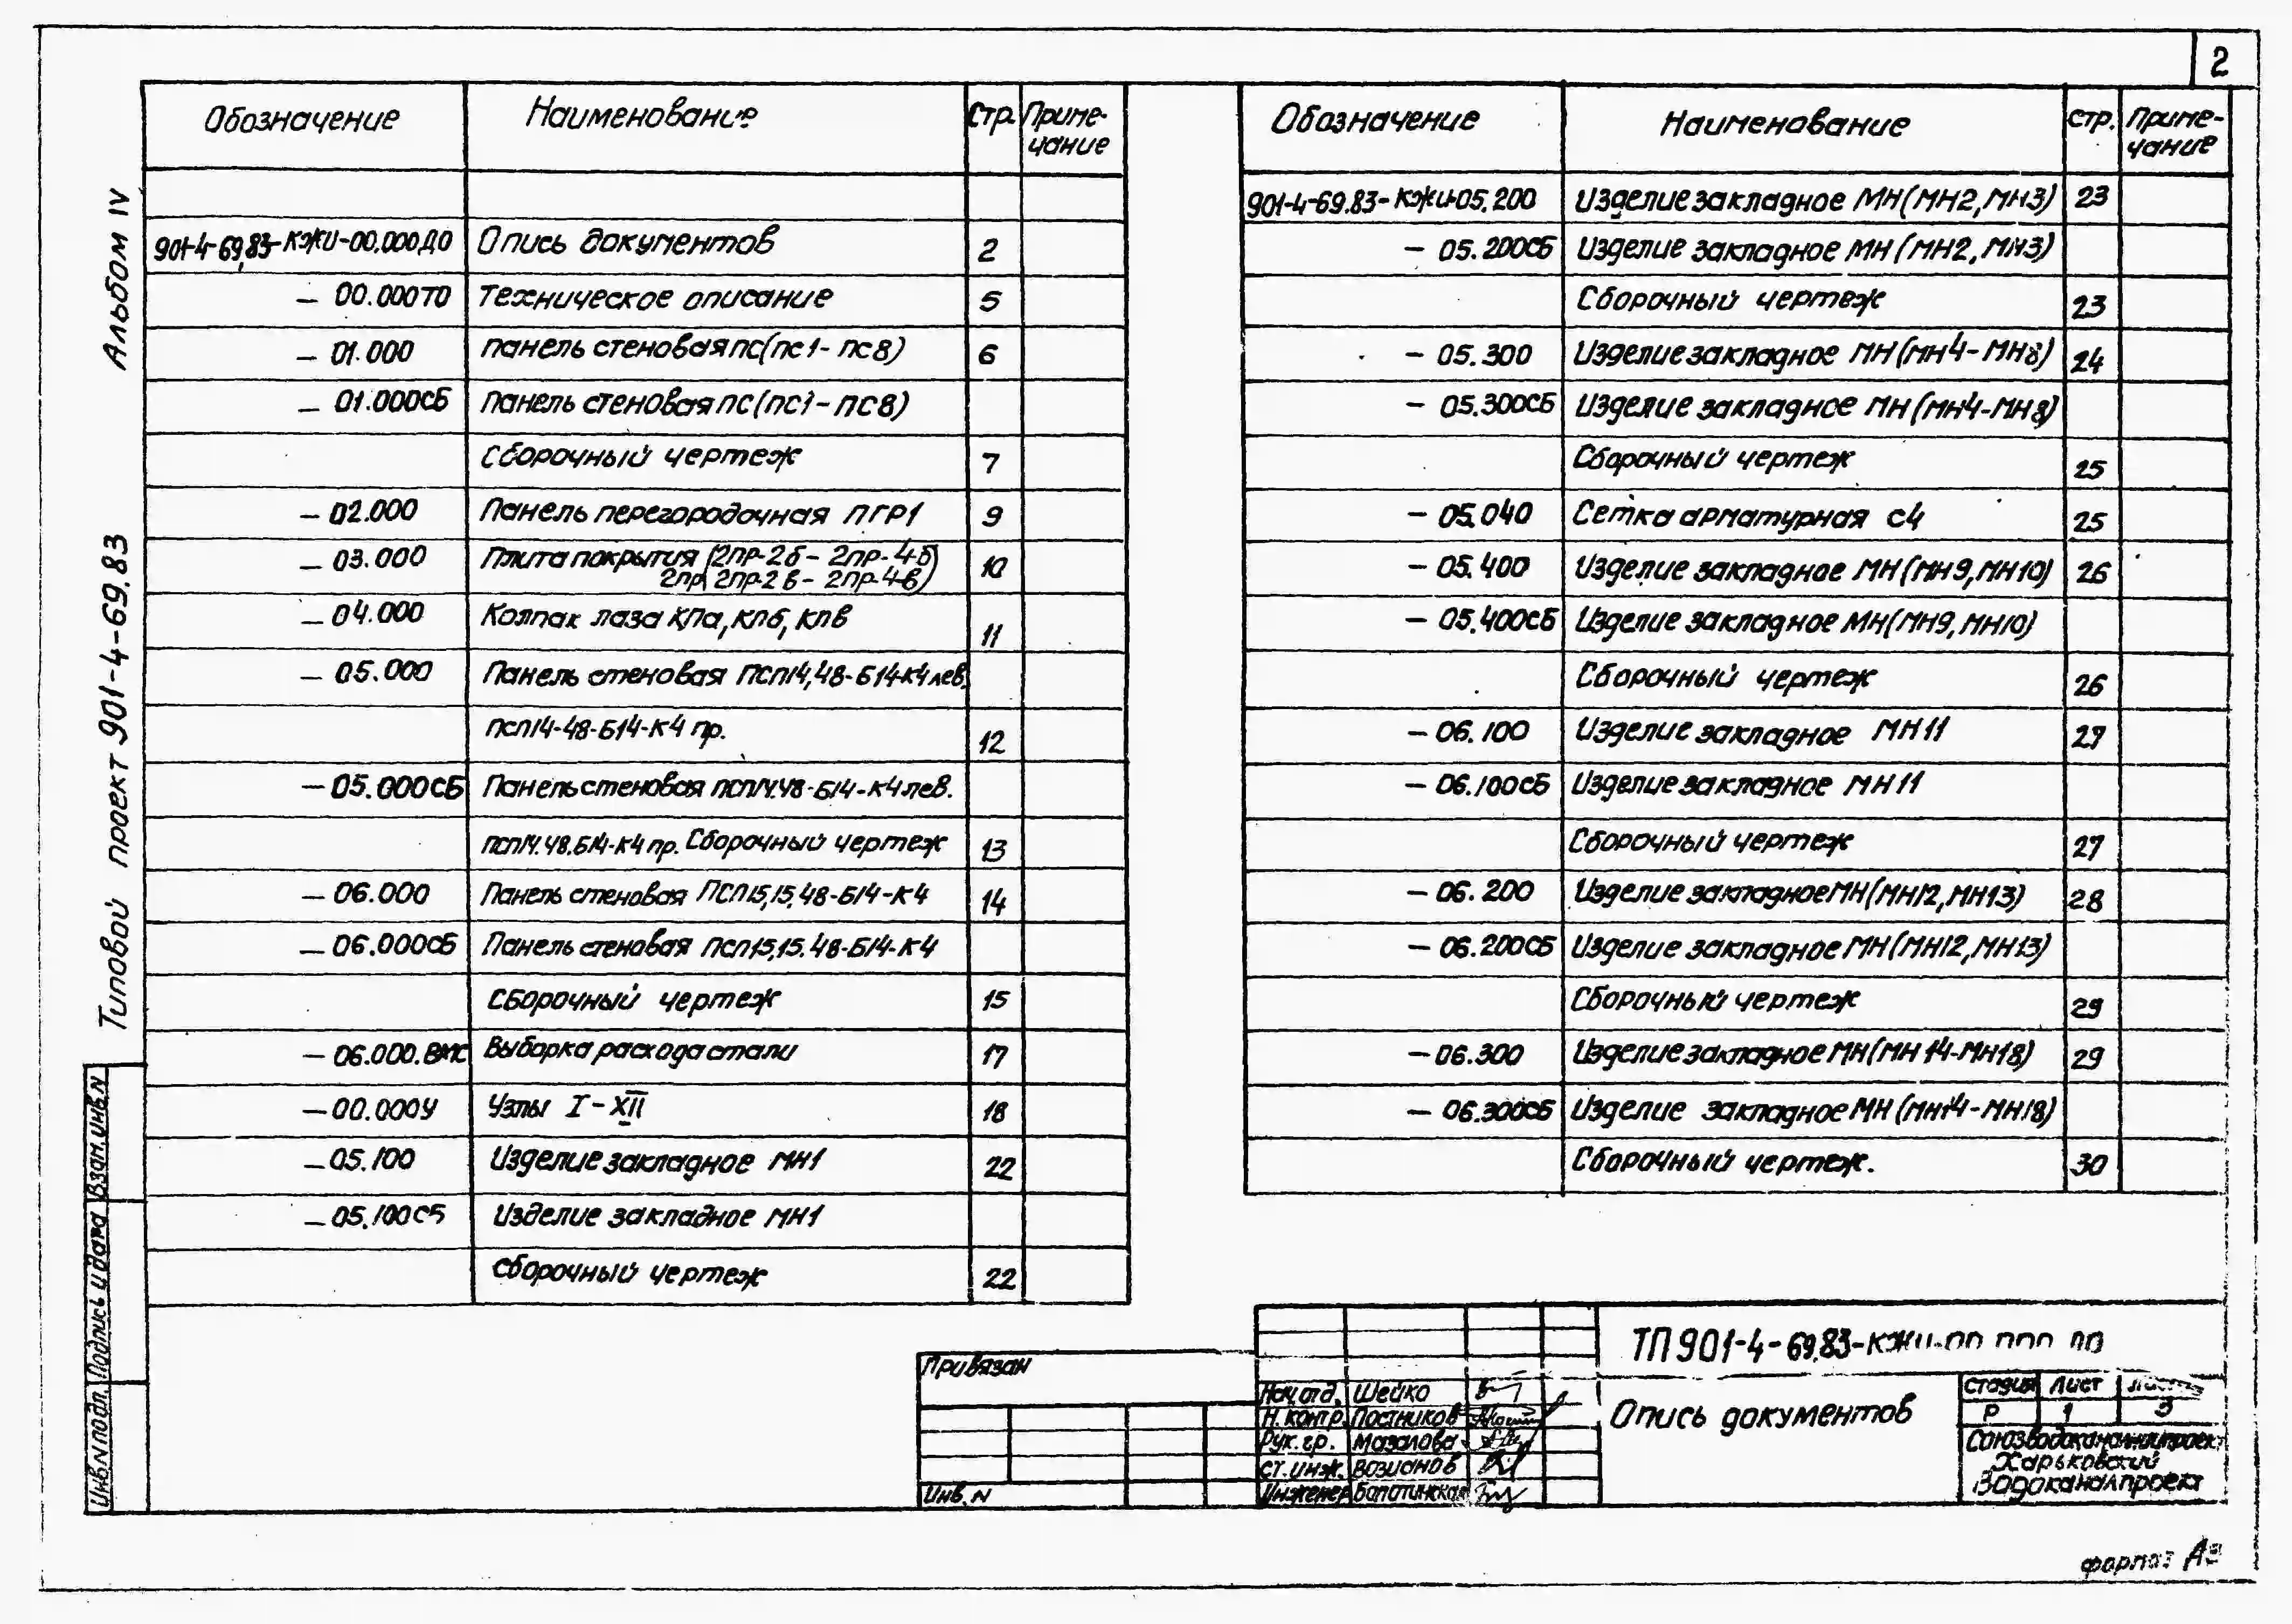 2
Альбом IV
Типовой проект 901-4-69.83
Обозначение Наименование Стр. Приме-
чание
901-4-69.83-КЖИ-00.000ДО Опись документов 2
— 00.000ТО Техническое описание 5
— 01.000 Панель стеновая ПС(ПС1-ПС8) 6
— 01.000СБ Панель стеновая ПС(ПС1-ПС8)
Сборочный чертеж 7
— 02.000 Панель перегородочная ПГР1 9
— 03.000 Плита покрытия (2ПР-2б- 2ПР-4б
2ПР 2ПР-2в- 2ПР-4в) 10
— 04.000 Колпак лаза КПа, КПб, КПв 11
— 05.000 Панель стеновая ПСП14,48-Б14-К4 лев.
ПСП14-48-Б14-К4 пр. 12
— 05.000СБ Панель стеновая ПСП14.48-Б14-К4 лев.
ПСП14.48.Б14-К4 пр. Сборочный чертеж 13
— 06.000 Панель стеновая ПСП15,15,48-Б14-К4 14
— 06.000СБ Панель стеновая ПСП15,15.48-Б14-К4
Сборочный чертеж 15
— 06.000.ВМС Выборка расхода стали 17
— 00.000У Узлы I-XII 18
— 05.100 Изделие закладное МН1 22
— 05.100СБ Изделие закладное МН1
Сборочный чертеж 22
Обозначение Наименование Стр. Приме-
чание
901-4-69.83-КЖИ-05.200 Изделие закладное МН(МН2,МН3) 23
— 05.200СБ Изделие закладное МН(МН2,МН3)
Сборочный чертеж 23
— 05.300 Изделие закладное МН(МН4-МН8) 24
— 05.300СБ Изделие закладное МН(МН4-МН8)
Сборочный чертеж 25
— 05.040 Сетка арматурная С4 25
— 05.400 Изделие закладное МН(МН9,МН10) 26
— 05.400СБ Изделие закладное МН(МН9,МН10)
Сборочный чертеж 26
— 06.100 Изделие закладное МН11 27
— 06.100СБ Изделие закладное МН11
Сборочный чертеж 27
— 06.200 Изделие закладное МН(МН12,МН13) 28
— 06.200СБ Изделие закладное МН(МН12,МН13)
Сборочный чертеж 29
— 06.300 Изделие закладное МН(МН14-МН18) 29
— 06.300СБ Изделие закладное МН(МН14-МН18)
Сборочный чертеж. 30
Инв.N подл. Подпись и дата Взам.инв.N
Привязан
Инв.N
ТП 901-4-69.83-КЖИ-00.000 ДО
Нач.отд. Шейко
Н.контр. Постников
Рук.гр. Мазалова
Ст.инж. Возианов
Инженер
Опись документов
Стадия Лист Листов
Р 1 3
Союзводоканалниипроект
Харьковский
Водоканалпроект
формат А3